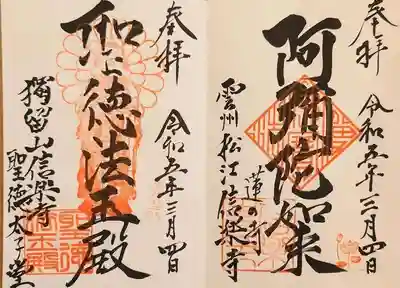 奉拝
阿彌陀如来
雲州松江信楽寺
蓮の寺
令和五年三月四日
奉拝
聖徳法王殿
令和五年三月四日
猫留山信楽寺
聖徳太子堂